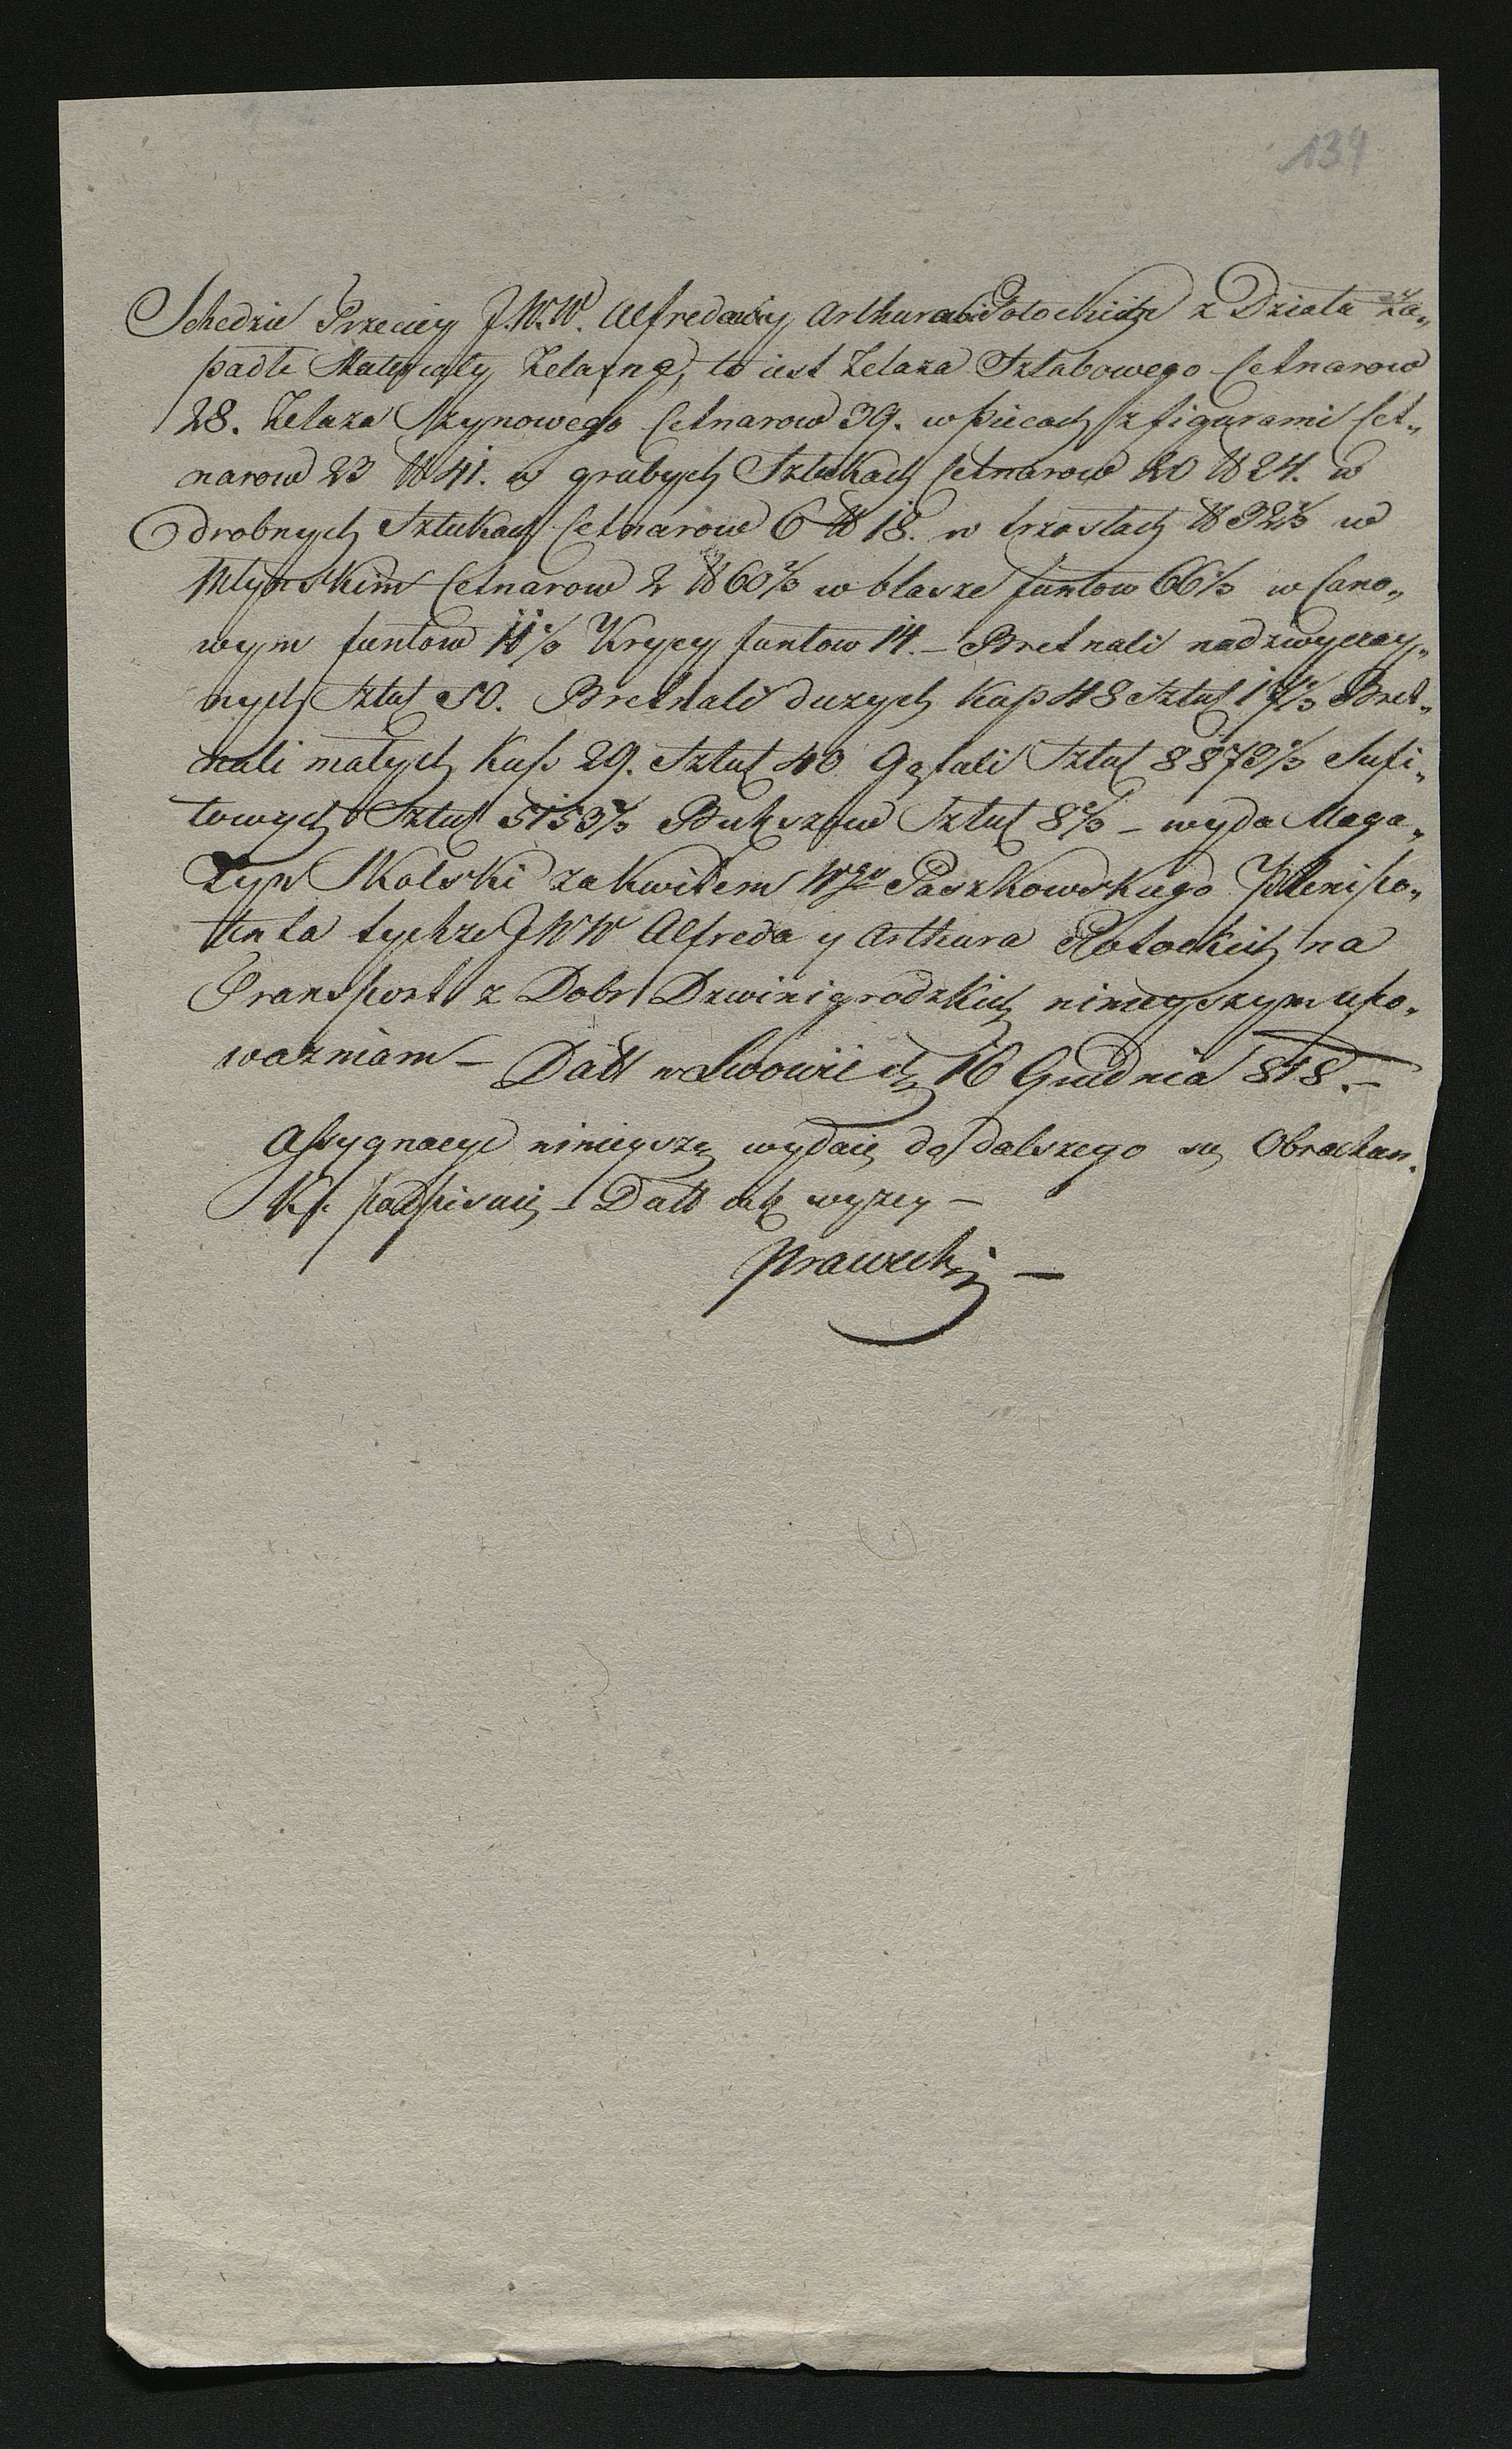 139
Schedzie Trzeciey J.W.W. Alfredowi y Arthurowi Potockich z Działu Za„
padłe Materyały Żelazne, to iest Żelaza Sztabowego Cetnarow
28. Żelaza Szynowego Cetnarow 39. w piecach z figurami Cet„
narow 23 ℔ 41. w grubych Sztukach Cetnarow 20 ℔ 24. w
drobnych Sztukach Cetnarow 6 ℔ 18. w ℔ 32⅔ w
Młynskim Cetnarow 2 ℔ 60⅔ w blasze funtow 66⅔ w Cano„
wym funtow 11⅔ Krycy funtow 14. – Bretnali nadzwyczay„
nych Sztuk 50. Bretnali duzych Kup 48 Sztuk Bret„
nali małych Kup 29. Sztuk 40 Gątali Sztuk 8873⅓ Sufi„
towych Sztuk 5153⅔ Bukszow Sztuk 8⅔ – wyda Maga„
zyn Skolski za kwitem Wgo Paszkowskiego Plenipo„
tenta tychże JWW Alfreda y Arthura Potockich na
Transport z Dobr Dzwinigrodzkich nineyszym upo„
wazniam – Datt w Lwowie d. 16 Grudnia 818. –
Assygnacye ninieyszą wydaię do dalszego się Obrachun„
Ku podpisuię – Datt jak wyzey –